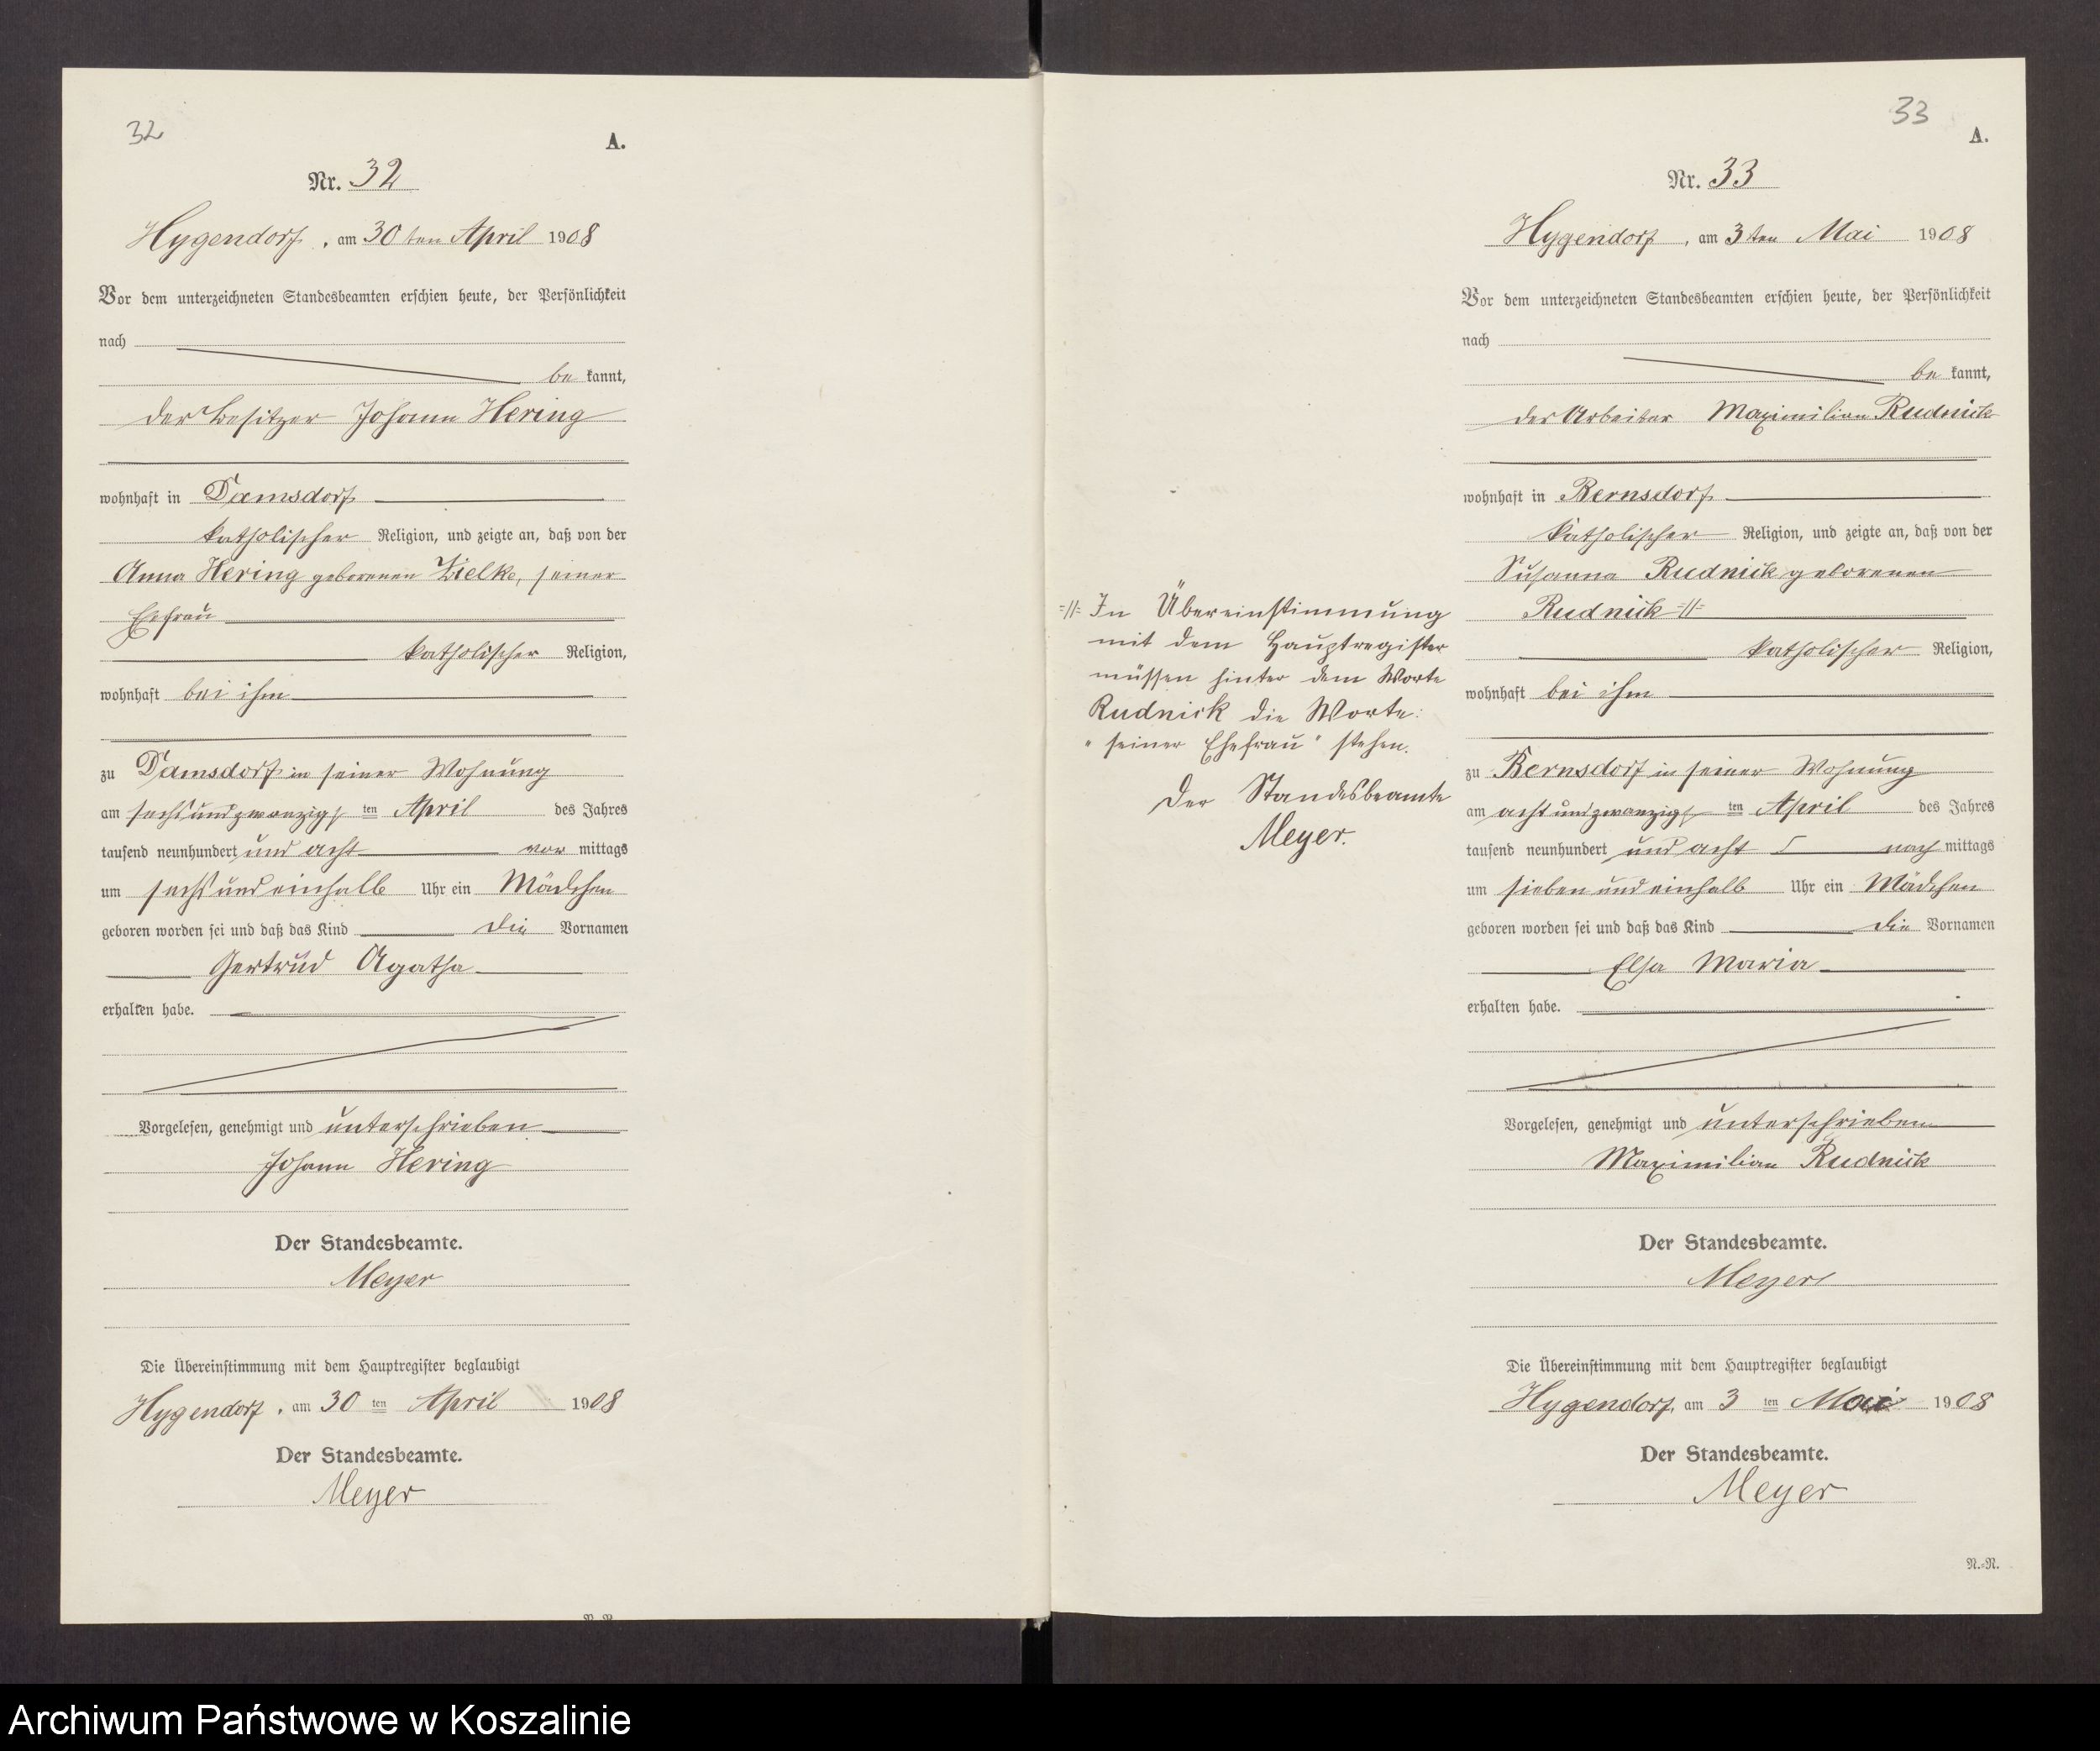 32
A.
Nr. 32
Hygendorf, am 30ten April 1908
Vor dem unterzeichneten Standesbeamten erschien heute, der Persönlichkeit
nach
be kannt,
der Besitzer Johann Hering
wohnhaft in Damsdorf
katholischer Religion, und zeigte an, daß von der
Anna Hering geborenen Zielke, seiner
Ehefrau
katholischer Religion,
wohnhaft bei ihm
zu Damsdorf in seiner Wohnung
am sechsundzwanzigsten April des Jahres
tausend neunhundert und acht vor mittags
um sechs und einhalb Uhr ein Mädchen
geboren worden sei und daß das Kind die Vornamen
Gertrud Agatha
erhalten habe.
Vorgelesen, genehmigt und unterschrieben
Johann Hering
Der Standesbeamte.
Meyer
Die Übereinstimmung mit dem Hauptregister beglaubigt
Hygendorf, am 30 ten April 1908
Der Standesbeamte.
Meyer
33
A.
Nr. 33
Hygendorf, am 3ten Mai 1908
Vor dem unterzeichneten Standesbeamten erschien heute, der Persönlichkeit
nach
be kannt,
der Arbeiter Maximilian Rudnick
wohnhaft in Bernsdorf
katholischer Religion, und zeigte an, daß von der
Susanna Rudnick geborenen
Rudnick =//=
katholischer Religion,
wohnhaft bei ihm
zu Bernsdorf in seiner Wohnung
am achtundzwanzigsten April des Jahres
tausend neunhundert und acht nach mittags
um sieben und einhalb Uhr ein Mädchen
geboren worden sei und daß das Kind die Vornamen
Elsa Maria
erhalten habe.
Vorgelesen, genehmigt und unterschrieben
Maximilian Rudnick
Der Standesbeamte.
Meyer
Die Übereinstimmung mit dem Hauptregister beglaubigt
Hygendorf, am 3 ten Mai 1908
Der Standesbeamte.
Meyer
N.-N.
=//= In Übereinstimmung
mit dem Hauptregister
müssen hinter dem Worte
Rudnick die Worte:
"seiner Ehefrau" stehen.
Der Standesbeamte
Meyer.
Archiwum Państwowe w Koszalinie